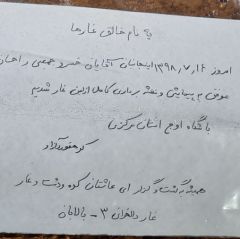 به نام خالق غارها
امروز ۱۳۹۸٫۷٫۱۶ اینجانبان آقایان خسرو جمعی را حمان
موفق به پیمایش و نقشه برداری کامل از این غار شدیم
باشگاه اوج استان مرکزی
کوهنوردان
همیشه گشت و گذار ای عاشقان کوه و دشت و غار
غار دالفران ۳ - پالایان